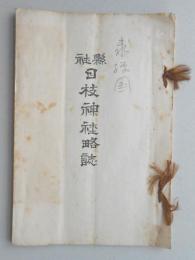 縣社
日枝神社略誌